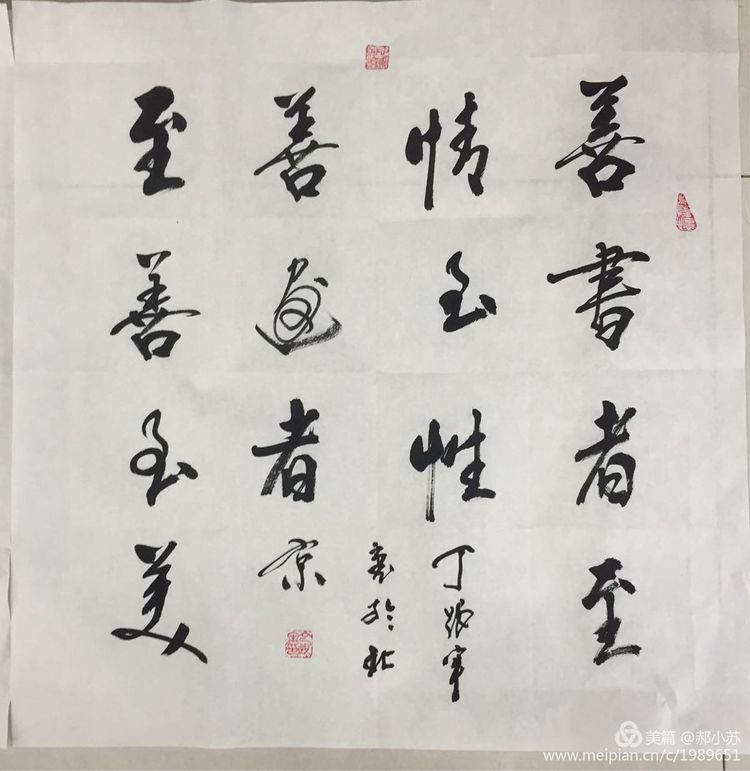 善書者至
情至性
丁 军
善畫者
書於北
京
至善至美
美篇 @郝小苏
www.meipian.cn/c/1989651